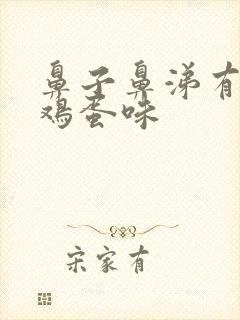 鼻子鼻涕有
鸡蛋味
宋家有